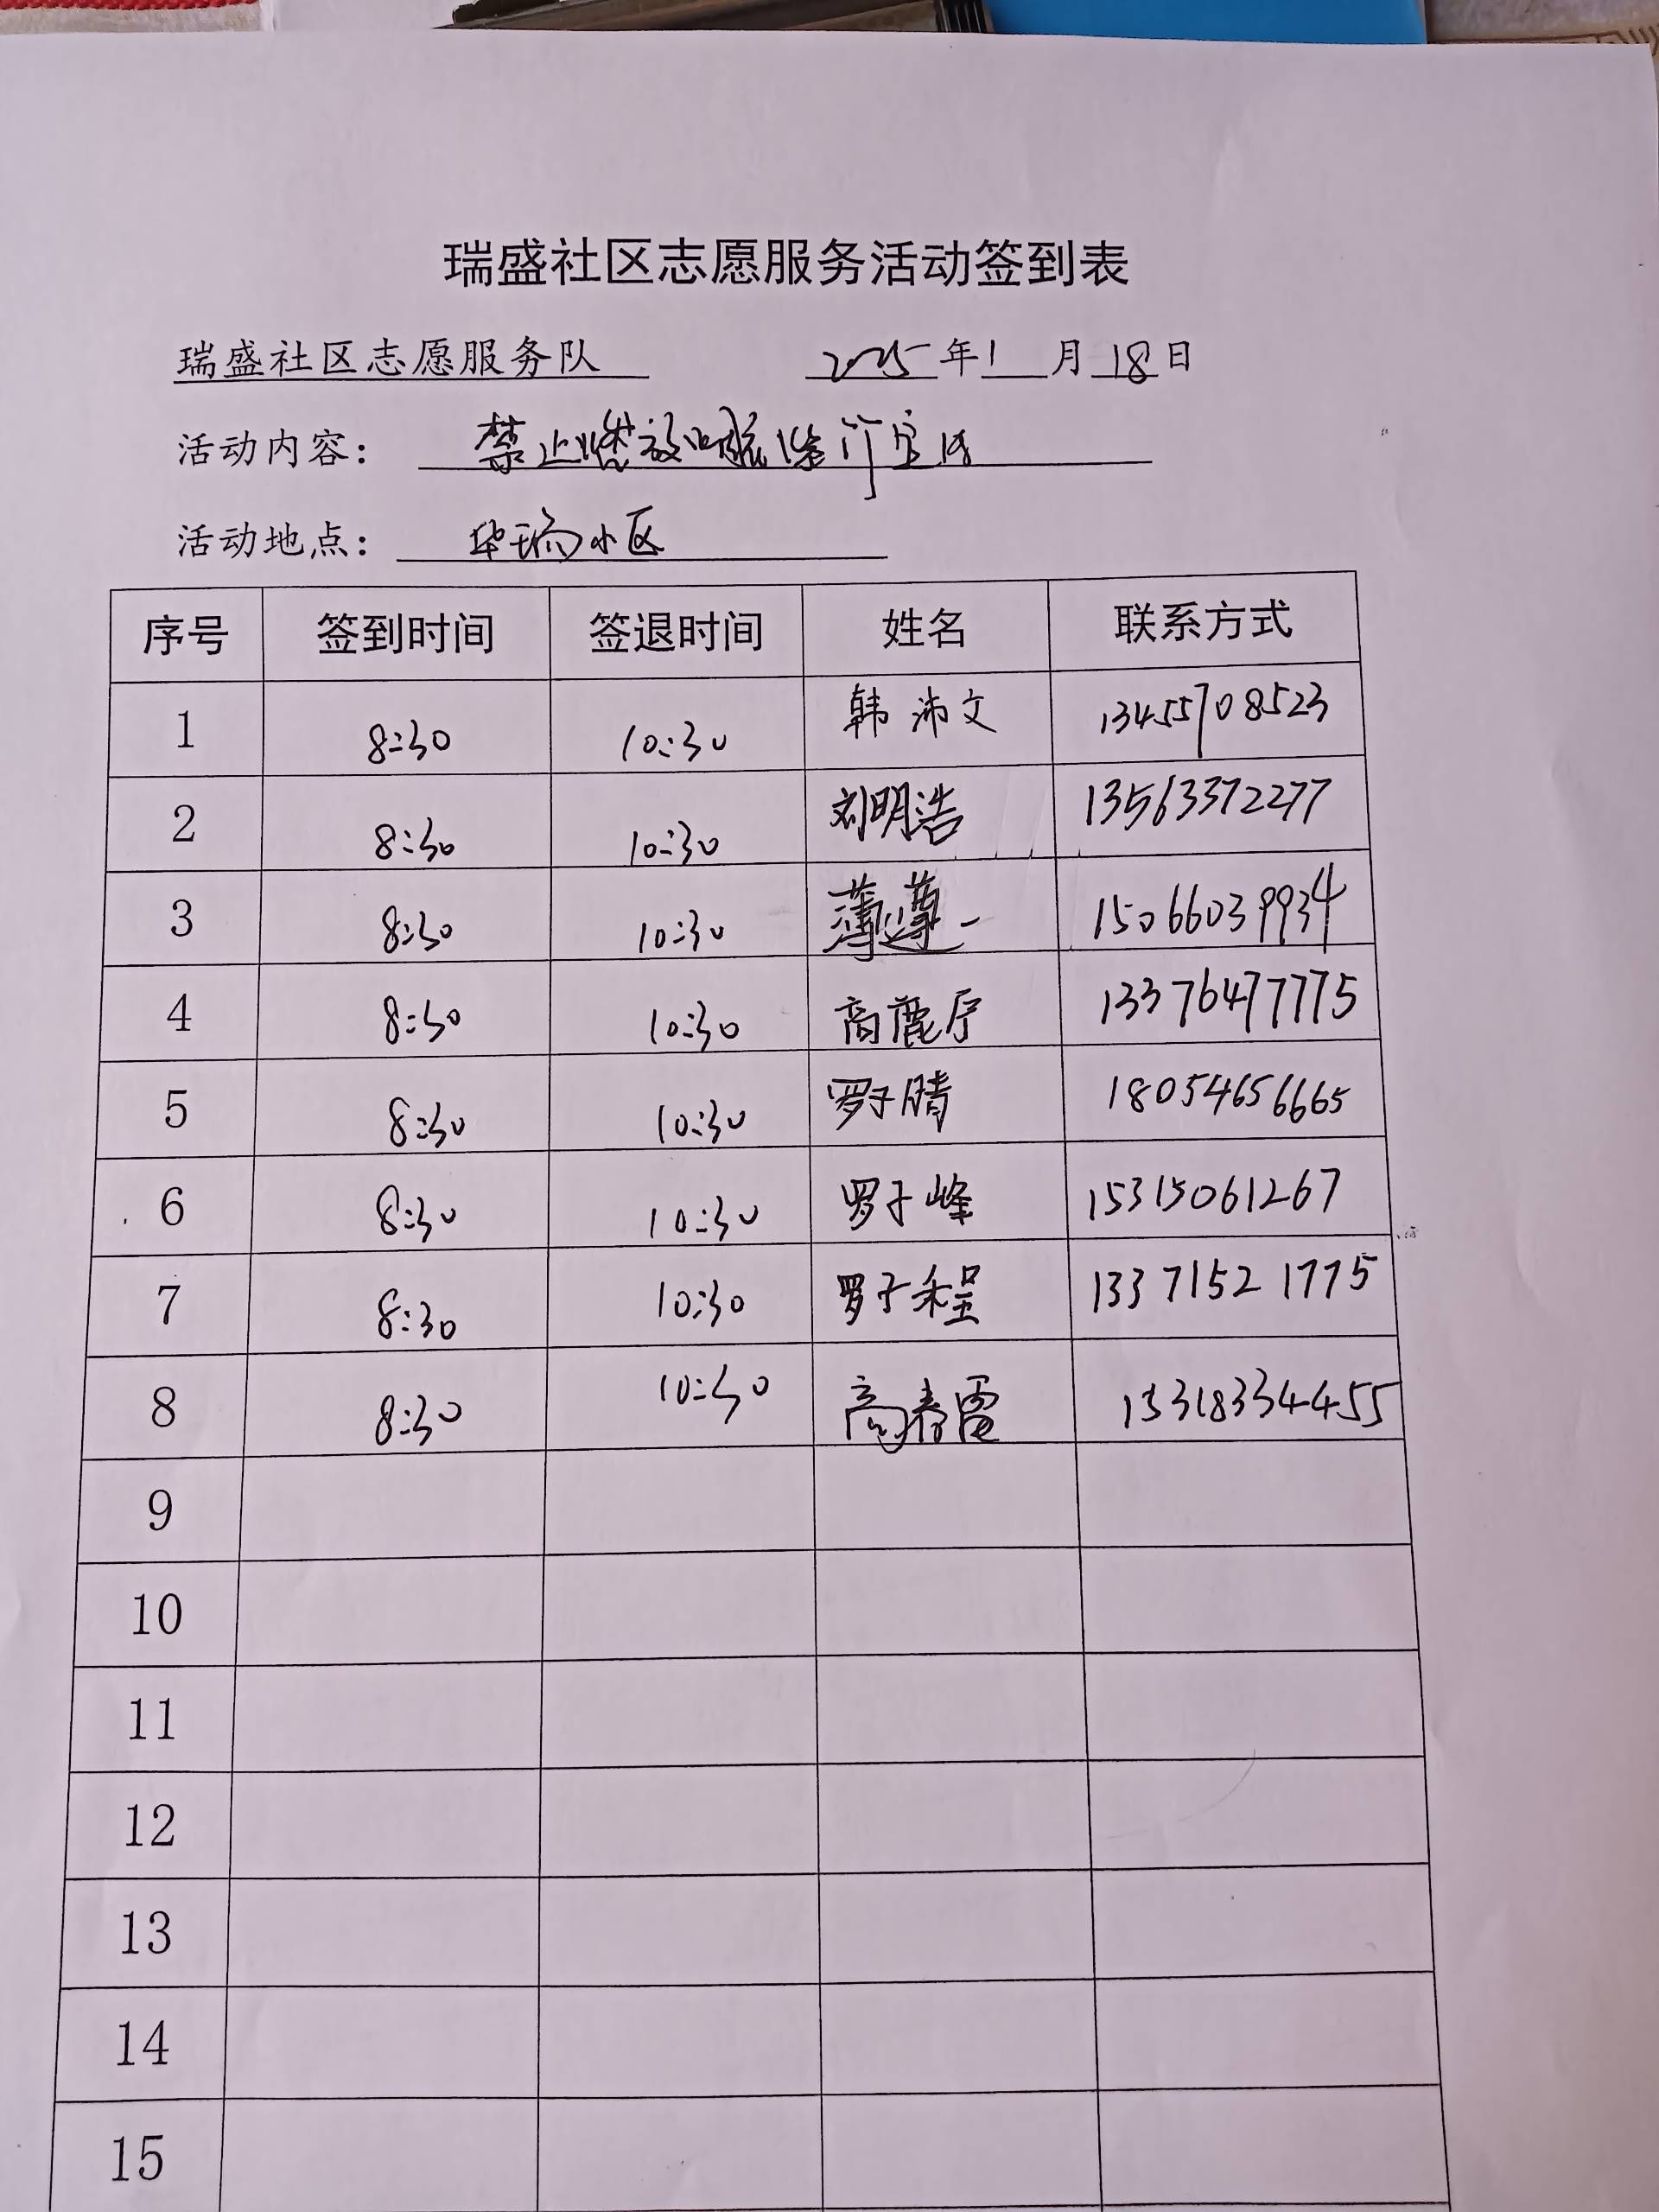 瑞盛社区志愿服务活动签到表
瑞盛社区志愿服务队 2025年1月18日
活动内容： 禁止燃放烟花爆竹宣传
活动地点： 华瑞小区
序号 签到时间 签退时间 姓名 联系方式
1 8:30 10:30 韩沛文 13455708523
2 8:30 10:30 刘明浩 13563372277
3 8:30 10:30 薄遵一 15066039934
4 8:30 10:30 13376477775
5 8:30 10:30 罗子晴 18054656665
6 8:30 10:30 罗子峰 15315061267
7 8:30 10:30 罗子程 13371521775
8 8:30 10:30 高春雷 15318334455
9
10
11
12
13
14
15